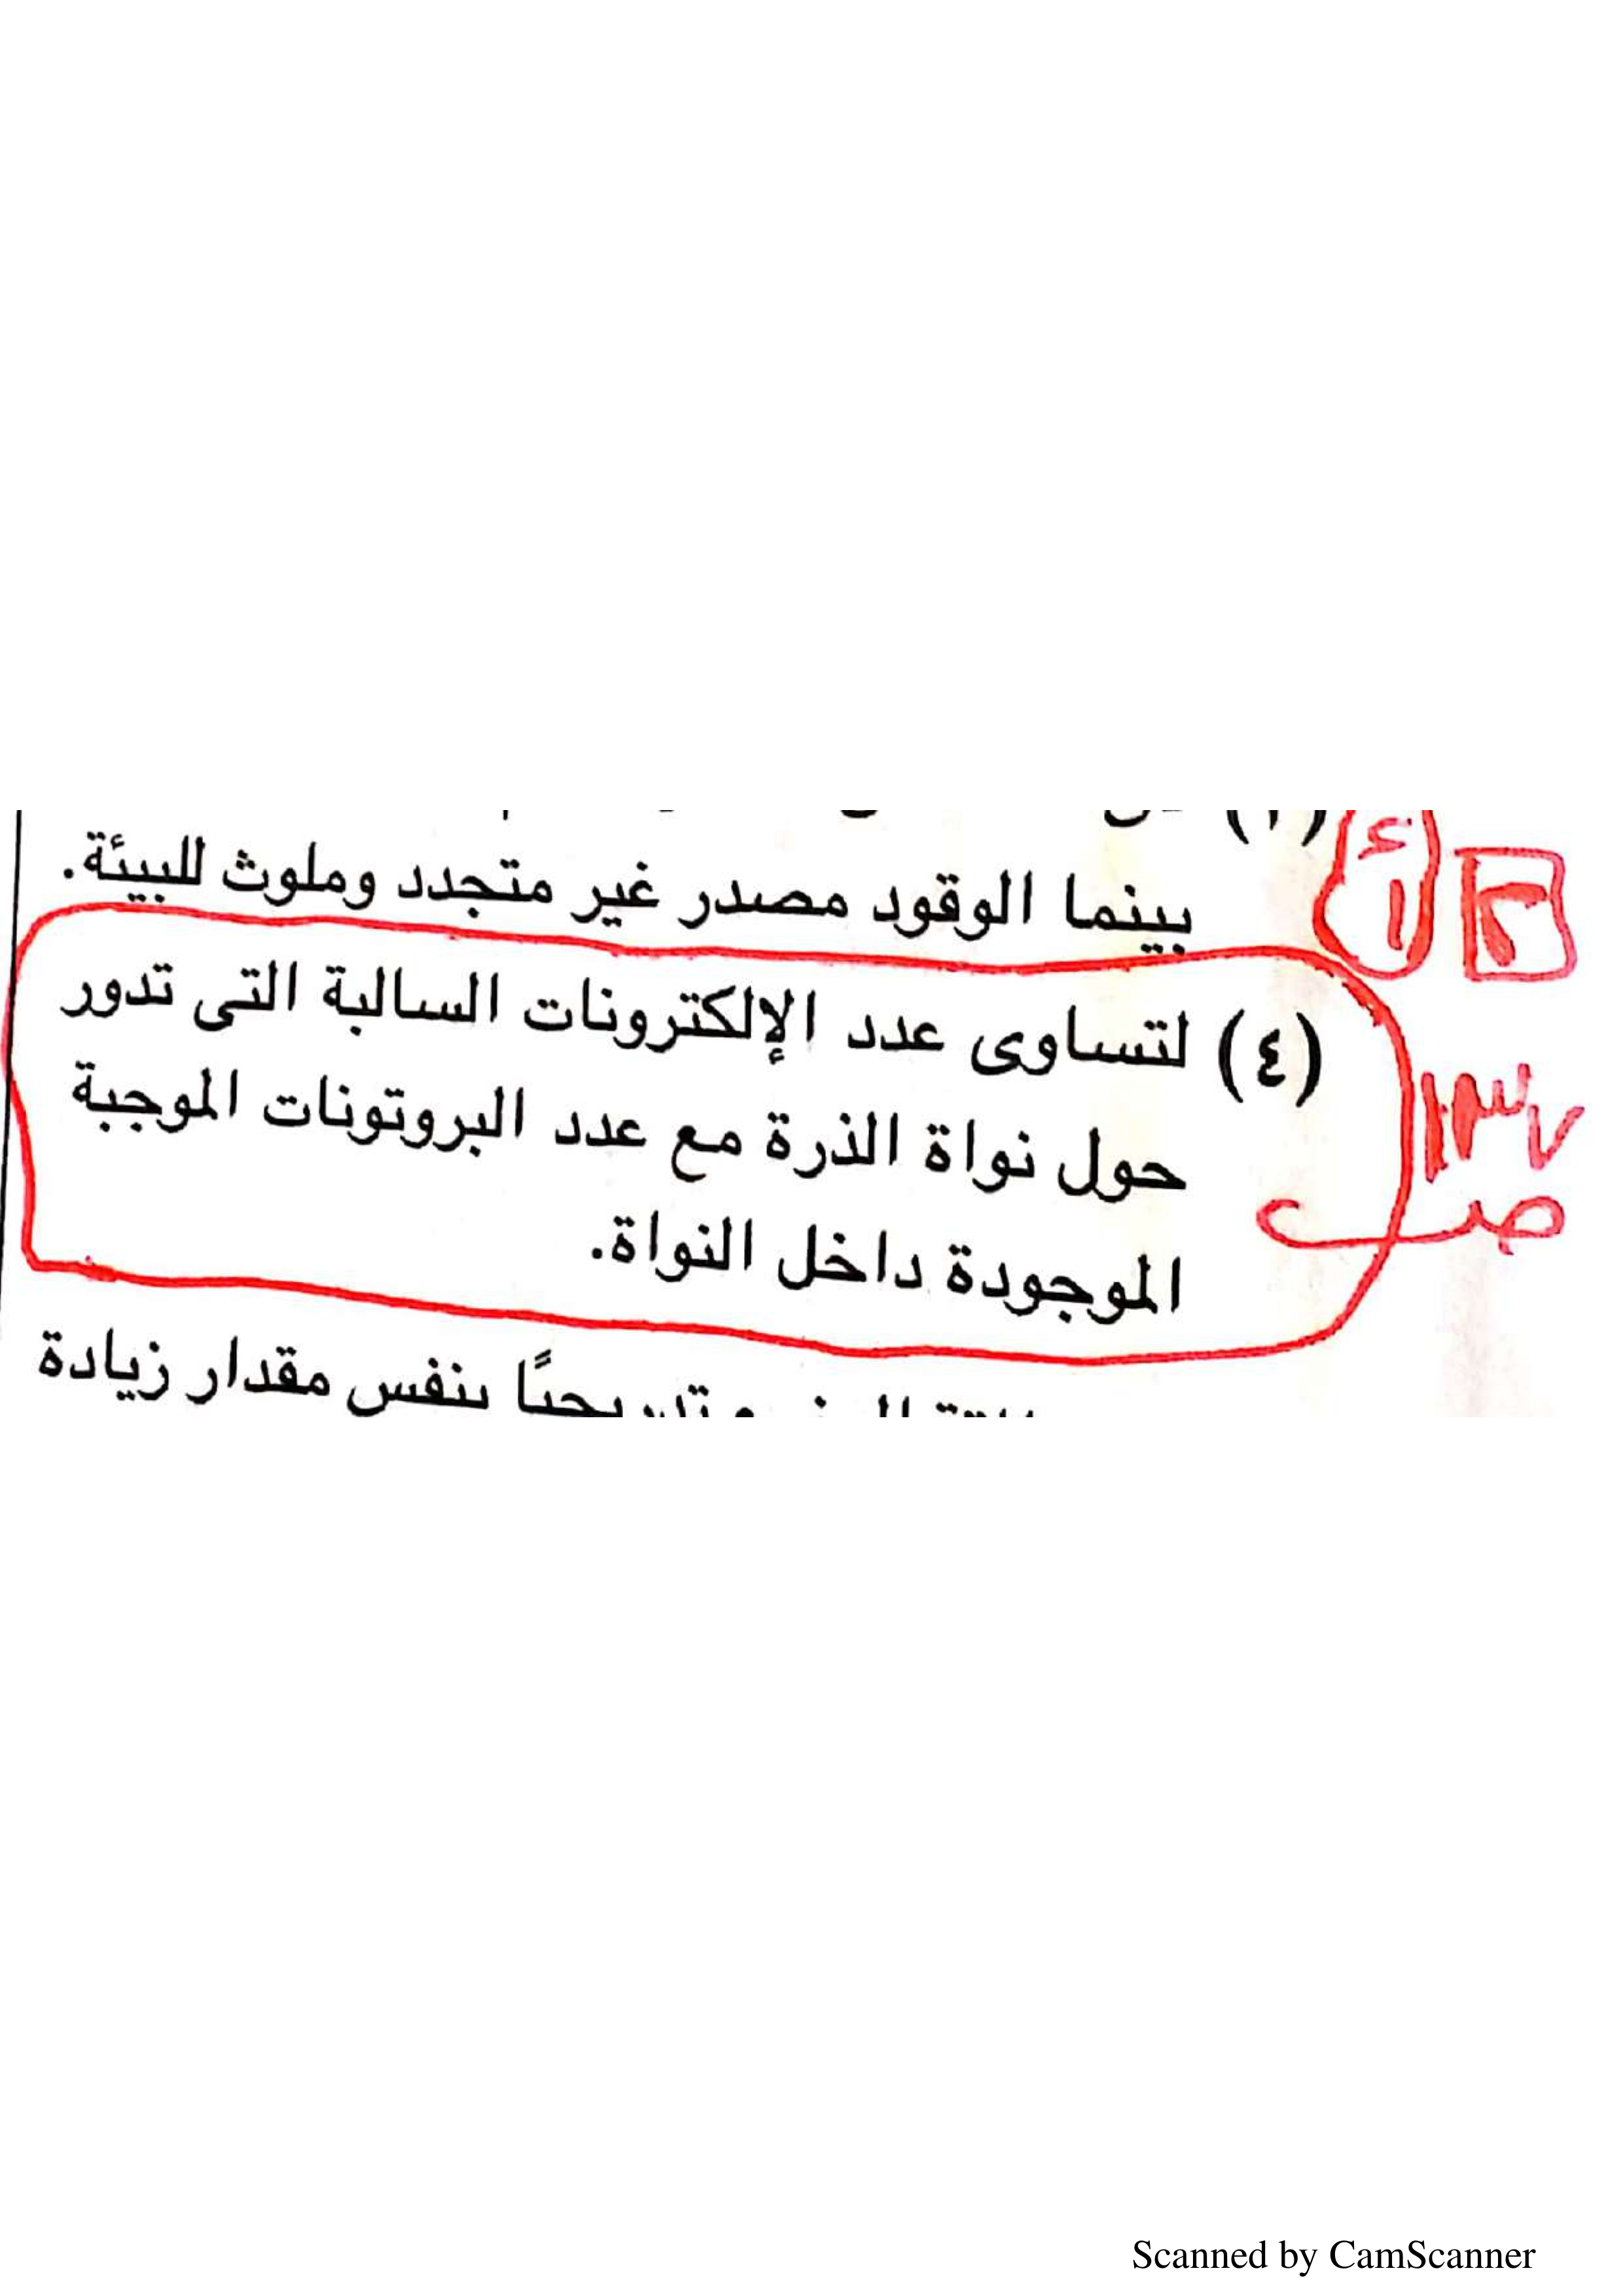 بينما الوقود مصدر غير متجدد وملوث للبيئة.
(٤) لتساوى عدد الإلكترونات السالبة التى تدور
حول نواة الذرة مع عدد البروتونات الموجبة
الموجودة داخل النواة.
بنفس مقدار زيادة
٢
١٣٧
ص
Scanned by CamScanner